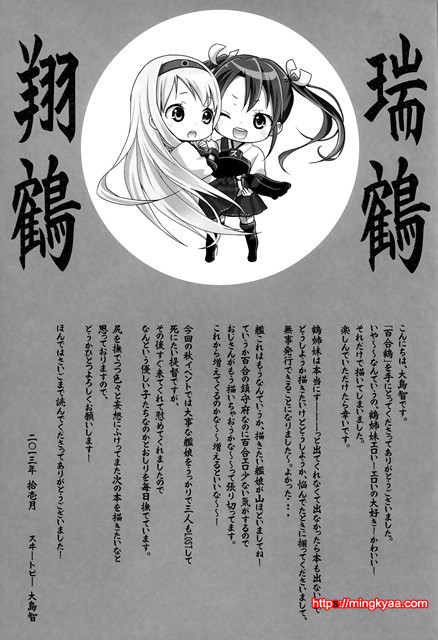 瑞鶴
翔鶴
こんにちは、大島智です。
「百合鶴」を手にとってくださってありがとうございました。
いや～～なんていうの、鶴姉妹エロい！エロいの大好き！かわいい！
それだけで描いてしまいました。
楽しんでいただけたら幸いです。
鶴姉妹は本当にずーーーーっと出てくれなくて出なかったら本も出ないし
どうしようか描きたいけどどうしようか、悩んでたときに揃ってくださいまして、
無事発行できることになりました～。よかった・・・
艦これはもうなんていうか、描きたい艦娘が山ほどいましてね！
ていうか百合の鎮守府なのに百合エロ少ない気がするので
おじさんがもう描いちゃおうかな～～って張り切ってます。
これから増えてくるのかな～～増えるといいな～～！
今回の秋イベントでは大事な艦娘をうっかりで三人もLOSTして
死にたい提督ですが、
その後すぐ来てくれて慰めてくれましたので
なんという優しい子たちなのかとおしりを毎日撫でています。
尻を撫でつつ色々と妄想にふけってまた次の本を描きたいなと
思っておりますので、
どうかひとつよろしくお願いします！
ほんではさいごまで読んでくださってありがとうございました！
二〇一三年 拾壱月
スヰートピー 大島智
http://mingkyaa.com